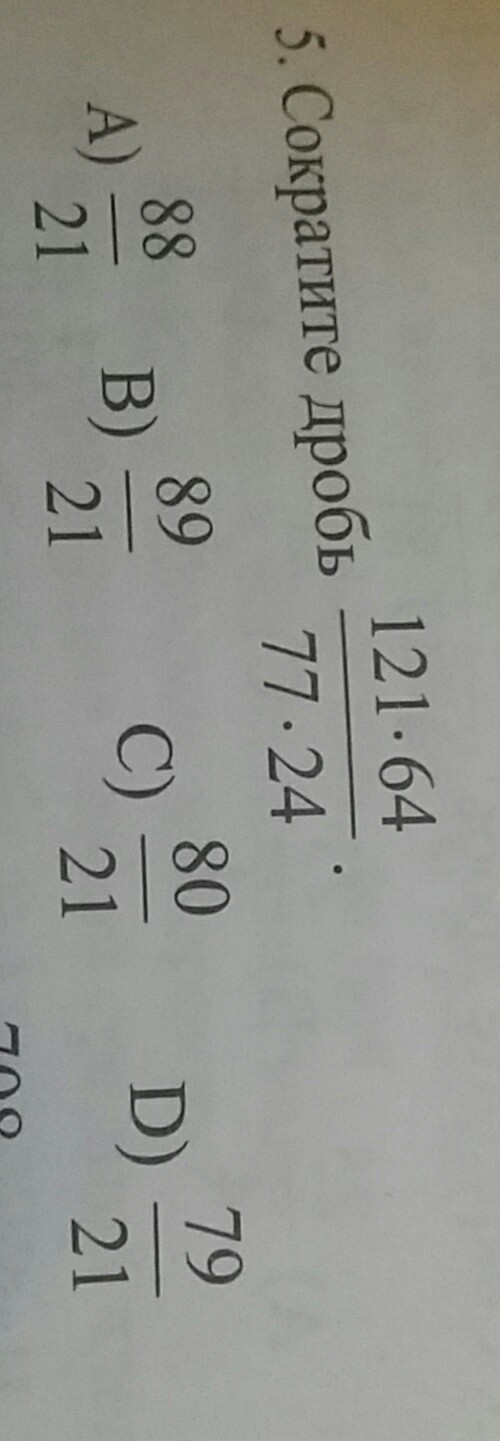 5. Сократите дробь 121·64 / 77·24 .
A) 88/21 B) 89/21 C) 80/21 D) 79/21